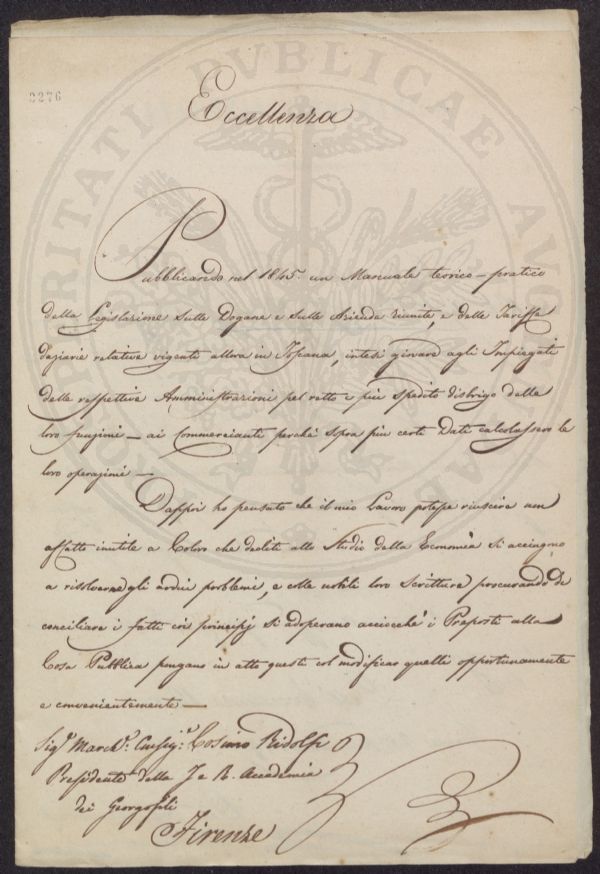 PROSPERITATI PVBLICAE AVGENDAE
2276
Eccellenza
Pubblicando nel 1845. un Manuale teorico-pratico
della Legislazione sulle Dogane e sulle Aziende riunite, e delle Tariffe
daziarie relative vigenti allora in Toscana, intesi giovare agli Impiegati
delle respettive Amministrazioni pel retto e più spedito disbrigo delle
loro funzioni — ai Commercianti perché sopra più certi Dati calcolassero le
loro operazioni —
Dappoi ho pensato che il mio Lavoro potesse riuscire non
affatto inutile a Coloro che dediti allo Studio della Economia si accingono
a risolverne gli ardui problemi, e colle utili loro Scritture procurando di
conciliare i fatti coi principj si adoperano acciocchè i Preposti alla
Cosa Pubblica pongano in atto questi col modificar quelli opportunamente
e convenientemente —
Sigr. March. Cosimo Ridolfi
Presidente della I e R. Accademia
dei Georgofili
Firenze